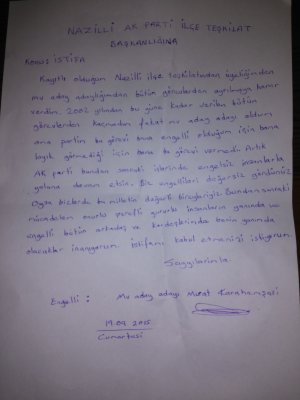 NAZİLLİ AK PARTİ İLÇE TEŞKİLAT
BAŞKANLIĞINA
KONUS İSTİFA
Kayıtlı olduğum Nazilli ilçe teşkilatından üyeliğimden
mv aday adaylığımdan bütün görevlerden ayrılmaya karar
verdim. 2002 yılından bu güne kadar verilen bütün
görevlerden kaçmadım fakat mv aday adayı oldum
ama partim bu görevi bana engelli olduğum için bana
layık görmediği için bana bu görevi vermedi. Artık
AK parti bundan sonraki işlerinde engelsiz insanlarla
yoluna devam etsin. Biz engellileri değersiz gördünüz
Oysa bizlerde bu milletin değerli bireyleriyiz. Bundan sonraki
mücadelem onurlu şerefli gururlu insanların yanında ve
engelli bütün arkadaş ve kardeşlerimde benim yanımda
olacaklar inanıyorum. istifamı kabul etmenizi istiyorum.
Saygılarımla.
Engelli : Mv aday adayı Murat Karahanşasi
19.09.2015
Cumartesi